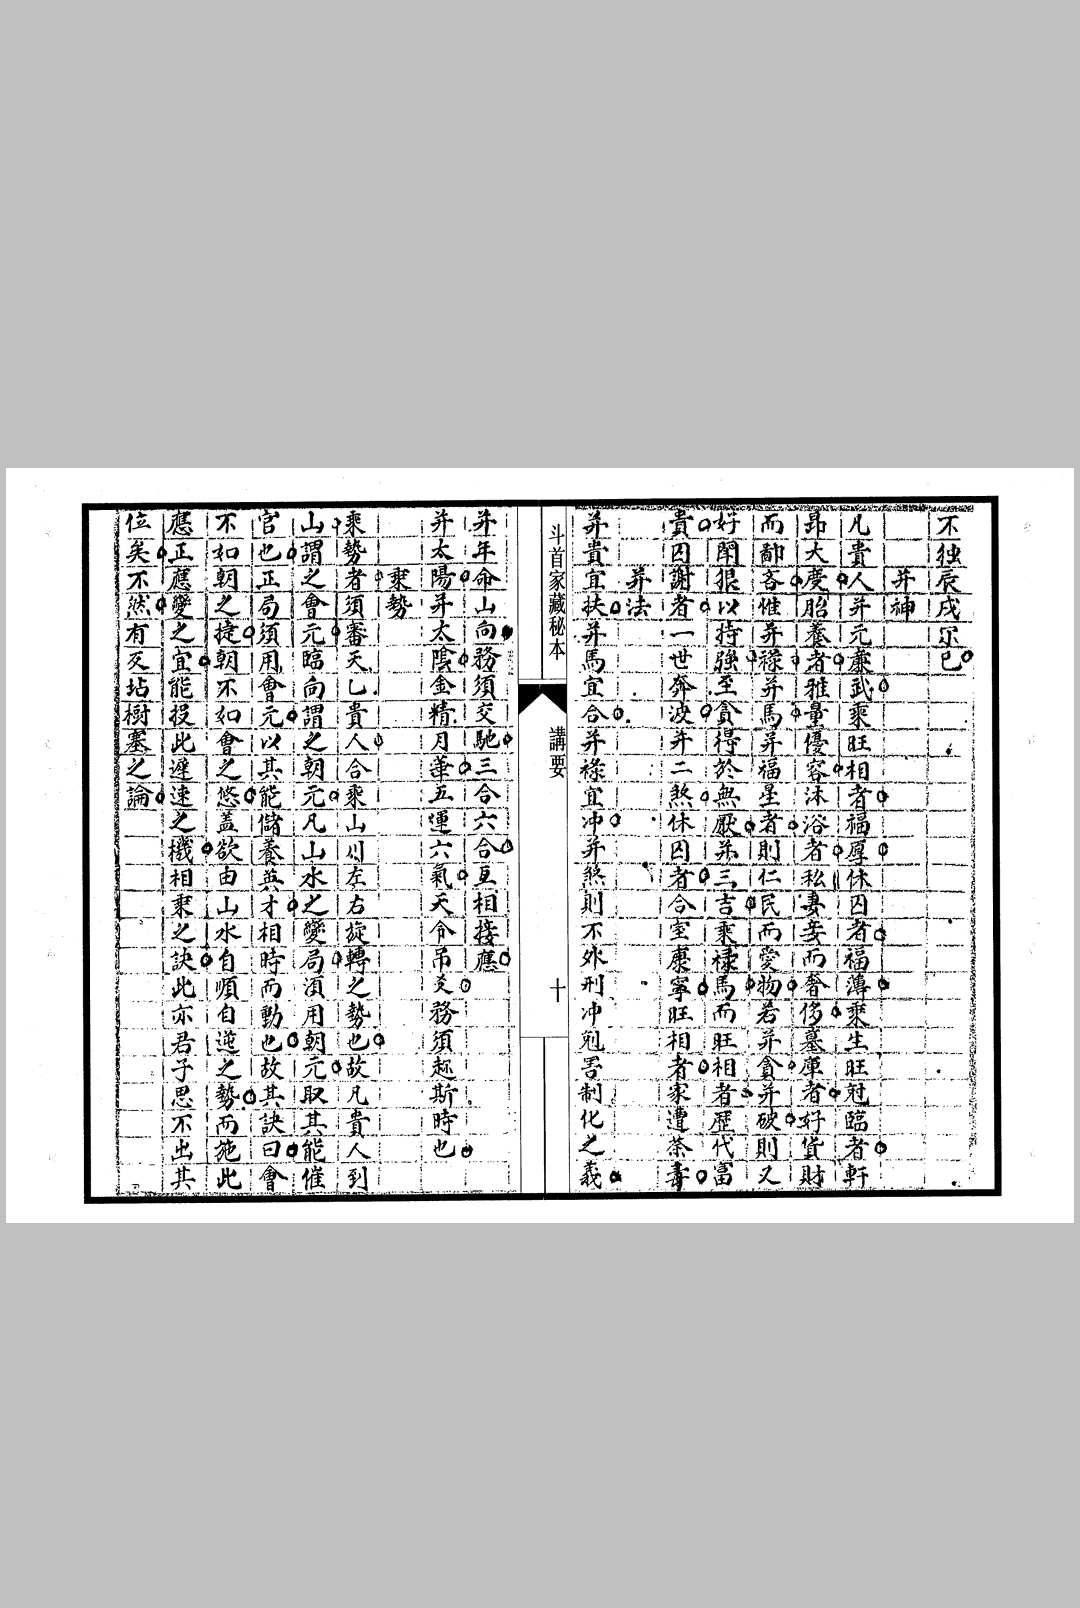 不独辰戌尔已
并神
凡貴人并元廉武乘旺相者福厚休囚者福薄乘生旺冠臨者軒
昂大慶胎養者雅量優容沐浴者私妻妾而奢侈墓庫者好貨財
而鄙吝惟并祿并馬并福星者則仁民而愛物若并貪并破則又
好閗狠以持強至貪得於無厭并三吉乘祿馬而旺相者歷代富
貴囚謝者一世奔波并二煞休囚者合室康寧旺相者家遭荼毒
并法
并貴宜扶并馬宜合并祿宜冲并煞則不外刑冲剋害制化之義
斗首家藏秘本
講要
十
并年命山向務須交馳三合六合互相接應
并太陽并太陰金精月華五運六氣天令吊爻務須趂斯時也
乘勢
乘勢者須審天乙貴人合乘山川左右旋轉之勢也故凡貴人到
山謂之會元臨向謂之朝元凡山水之變局須用朝元取其能催
官也正局須用會元以其能儲養英才相時而動也故其訣曰會
不如朝之捷朝不如會之悠蓋欲由山水自順自逆之勢而施此
應正應變之宜能投此遲速之機相乘之訣此亦君子思不出其
位矣不然有反坫樹塞之論